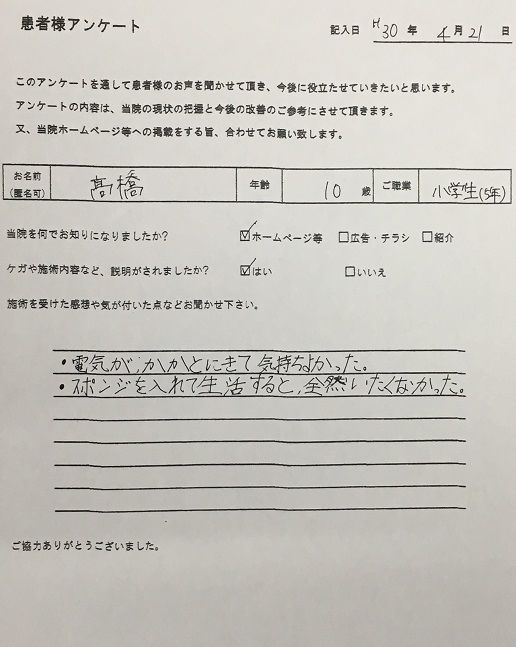 患者様アンケート
記入日 H30年 4月21日
このアンケートを通して患者様のお声を聞かせて頂き、今後に役立たせていきたいと思います。
アンケートの内容は、当院の現状の把握と今後の改善のご参考にさせて頂きます。
又、当院ホームページ等への掲載をする旨、合わせてお願い致します。
お名前(匿名可) 髙橋 年齢 10歳 ご職業 小学生(5年)
当院を何でお知りになりましたか? ☑ホームページ等 □広告・チラシ □紹介
ケガや施術内容など、説明がされましたか? ☑はい □いいえ
施術を受けた感想や気が付いた点などお聞かせ下さい。
・電気が、かかとにきて気持ちよかった。
・スポンジを入れて生活すると、全然いたくなかった。
ご協力ありがとうございました。